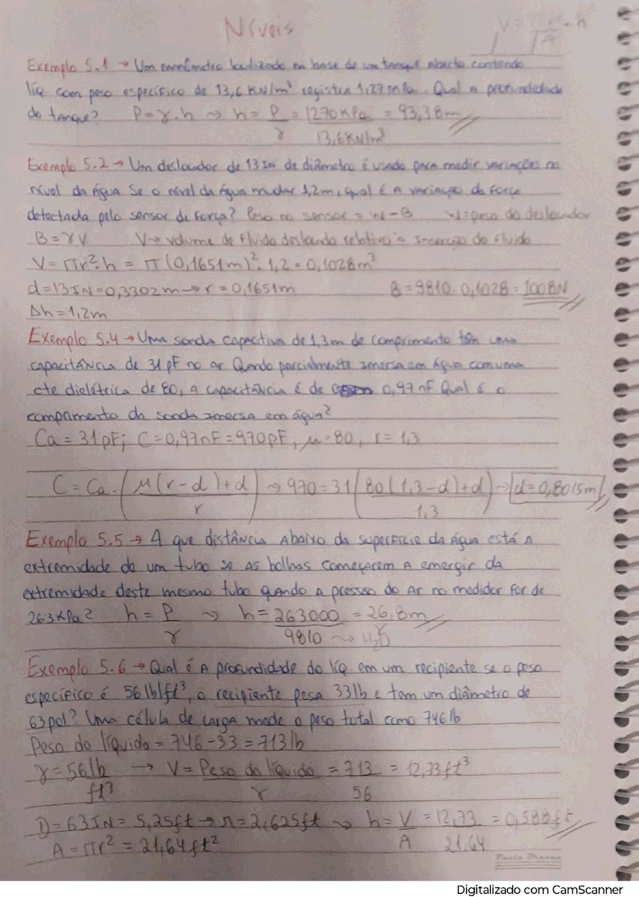 Níveis
V = πr².h
A
Exemplo 5.1 → Um manômetro localizado na base de um tanque aberto contendo
líq com peso específico de 13,6 KN/m³ registra 1,27 MPa. Qual a profundidade
do tanque? P=γ.h → h = P/γ = 1270KPa/13,6KN/m³ = 93,38m
Exemplo 5.2 → Um deslocador de 13 IN de diâmetro é usado para medir variações no
nível da água se o nível da água mudar 1,2m, qual é a variação da força
detectada pelo sensor de força? Peso no sensor = W - B W=peso do deslocador
B = γV V→ volume de fluido deslocado relativo a Inserção do Fluido
V = πr².h = π(0,1651m)².1,2 = 0,1028m³
d=13IN=0,3302m → r=0,1651m B=9810.0,1028=1008N
Δh=1,2m
Exemplo 5.4 → Uma sonda capacitiva de 1,3m de comprimento têm uma
capacitância de 31pF no ar. Quando parcialmente imersa em água com uma
cte dielétrica de 80, a capacitância é de 0,97 nF Qual é o
comprimento da sonda imersa em água?
Ca = 31pF; C=0,97nF=970pF, μ=80, r=1,3
C = Ca.(μ(r-d)+d/r) → 970=31(80(1,3-d)+d/1,3) → d=0,8015m
Exemplo 5.5 → A que distância abaixo da superfície da água está a
extremidade de um tubo se as bolhas começarem a emergir da
extremidade deste mesmo tubo quando a pressão do ar no medidor for de
263KPa? h = P/γ → h = 263000/9810 = 26,8m
→ H₂O
Exemplo 5.6 → Qual é a profundidade do líq em um recipiente se o peso
específico é 56 lb/ft³, o recipiente pesa 33lb e tem um diâmetro de
63pol? Uma célula de carga mede o peso total como 746 lb
Peso do líquido = 746-33 = 713lb
γ=56lb/ft³ → V=Peso do líquido/γ = 713/56 = 12,73ft³
D=63IN=5,25ft → r=2,625ft → h=V/A=12,73/21,64=0,588ft
A=πr²=21,64ft²
Digitalizado com CamScanner